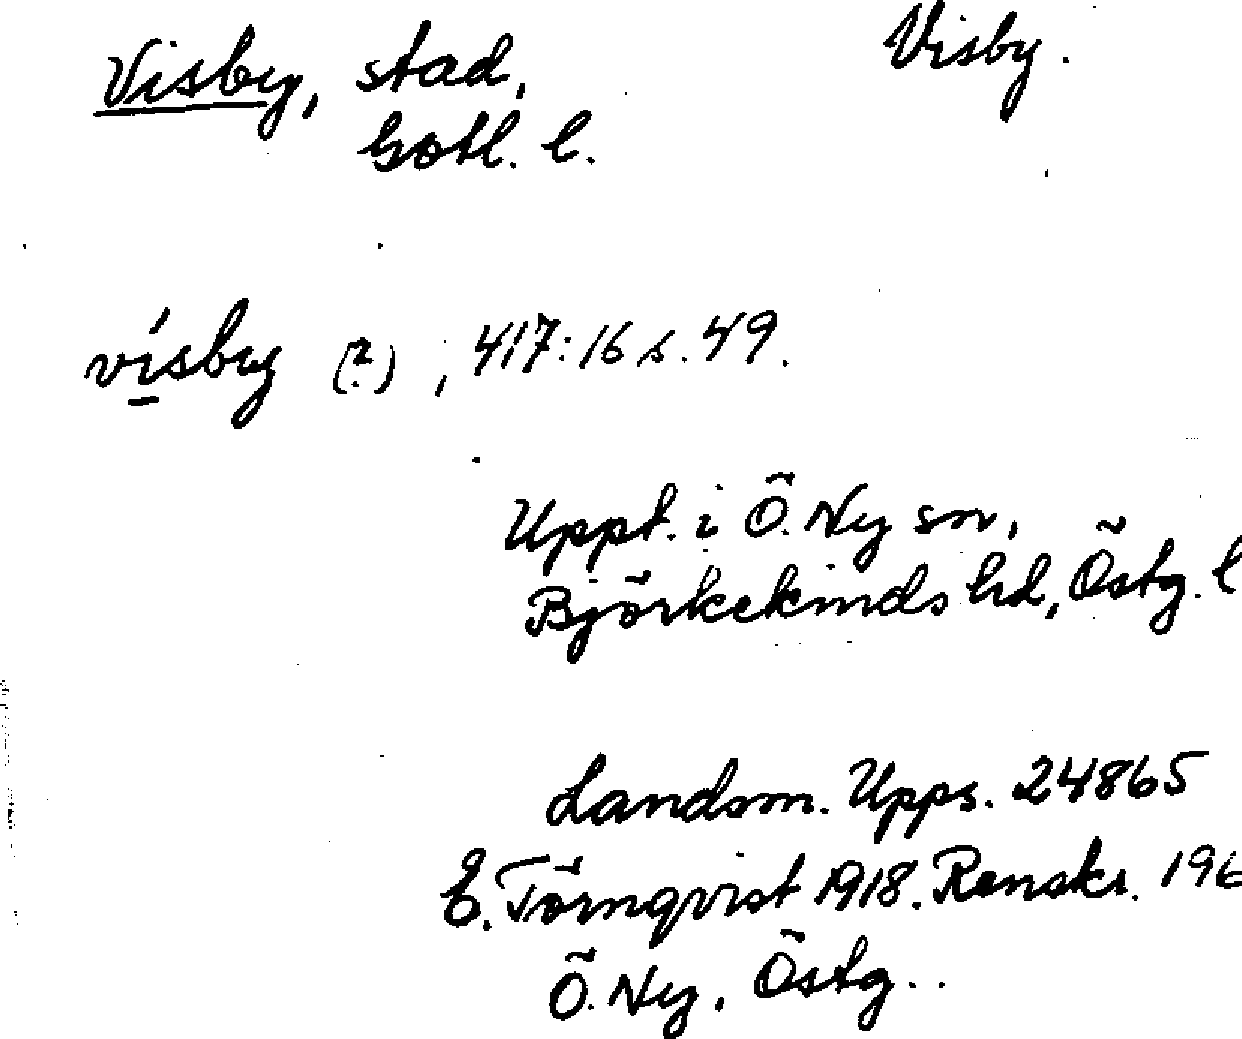 Visby, stad, Visby.
Gotl. l.
vísby (?), 417:16 s. 49.
Uppt. i Ö. Ny sn,
Björkekinds hd, Östg. l
Landsm. Upps. 24865
E. Törnqvist 1918. Renskr. 196
Ö. Ny, Östg..